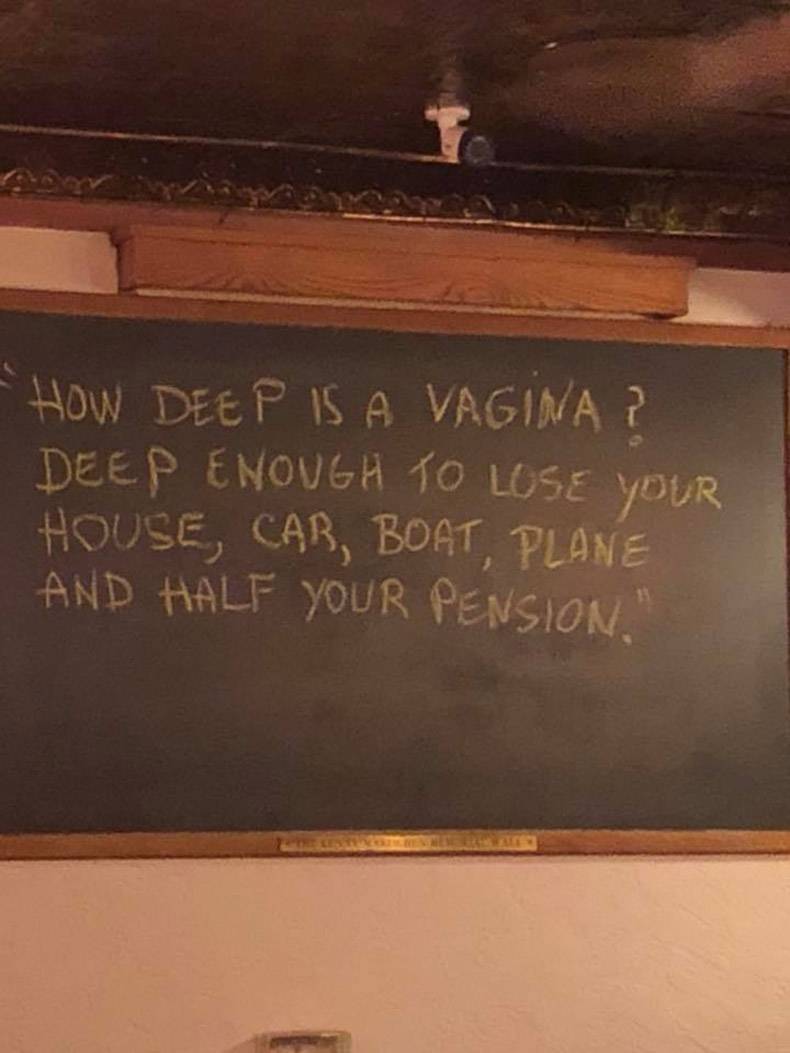 "HOW DEEP IS A VAGINA?
DEEP ENOUGH TO LOSE YOUR
HOUSE, CAR, BOAT, PLANE
AND HALF YOUR PENSION."